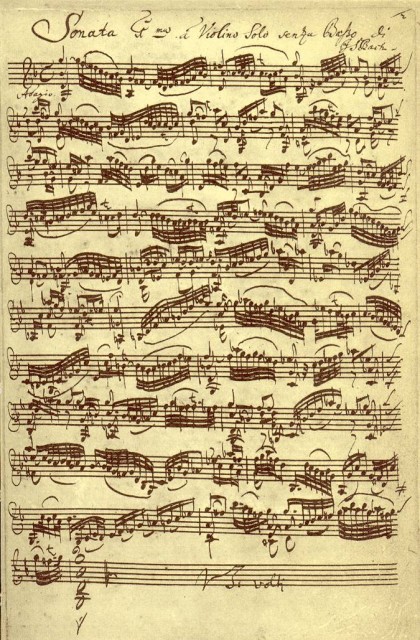 Sonata 1ma à Violino Solo senza Baßo di
J. S. Bach
Adagio.
V. Si volti